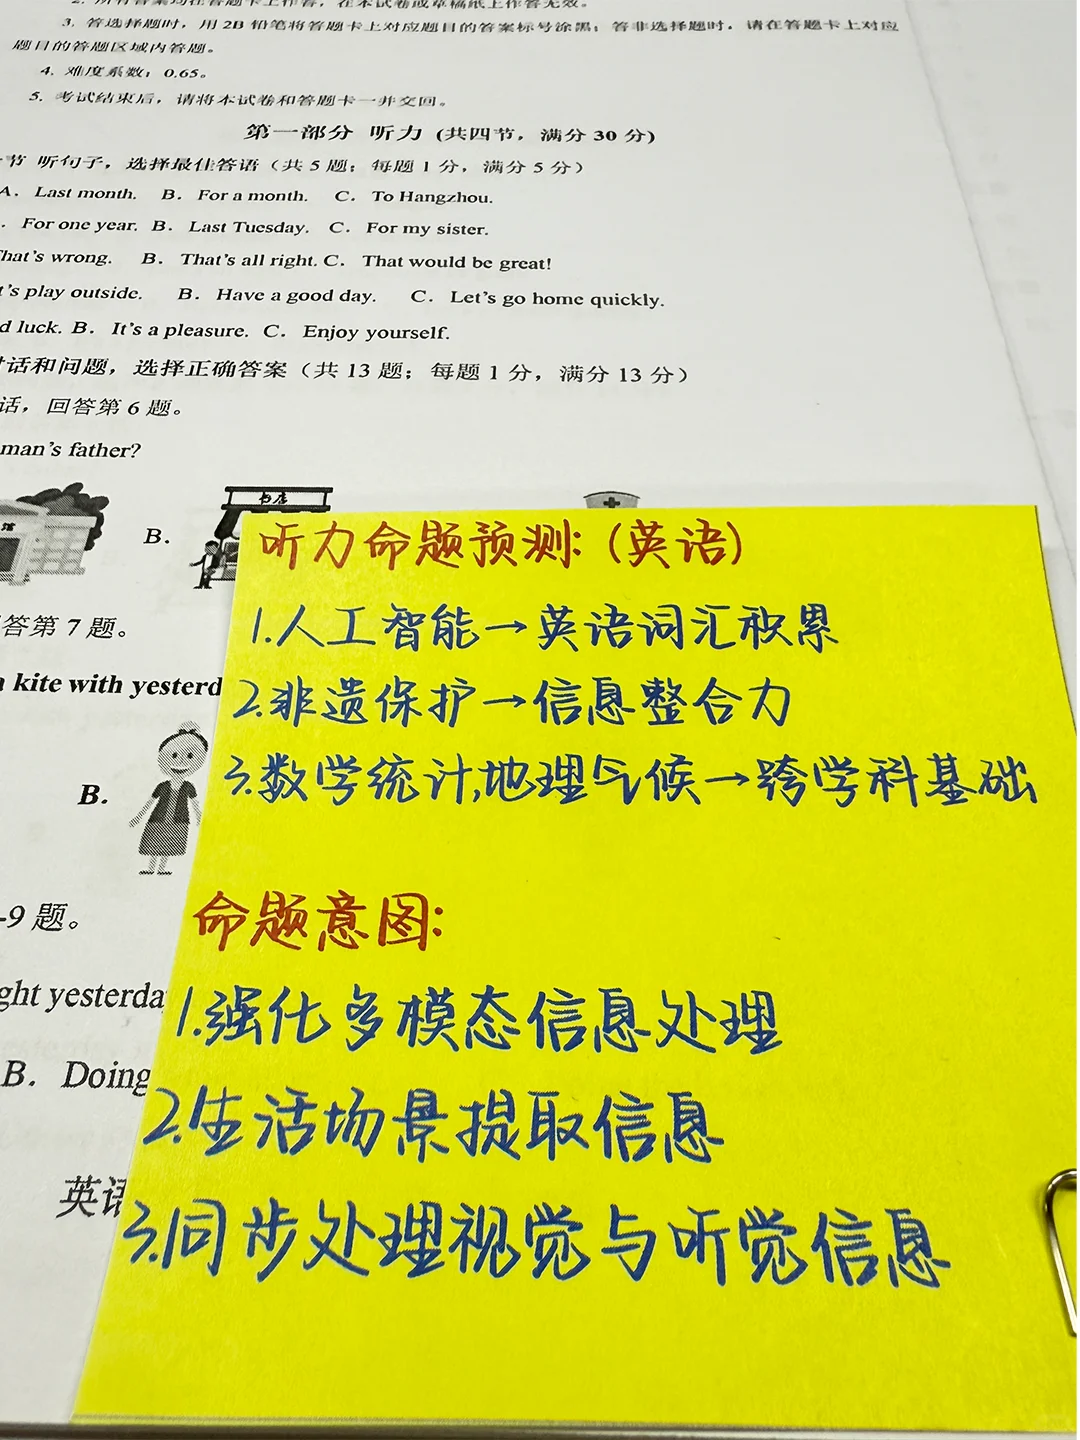 2. 所有答案均在答题卡上作答，在本试卷或草稿纸上作答无效。
3. 答选择题时，用 2B 铅笔将答题卡上对应题目的答案标号涂黑；答非选择题时，请在答题卡上对应
题目的答题区域内答题。
4. 难度系数：0.65。
5. 考试结束后，请将本试卷和答题卡一并交回。
第一部分 听力 (共四节，满分 30 分)
节 听句子，选择最佳答语（共 5 题；每题 1 分，满分 5 分）
A. Last month. B. For a month. C. To Hangzhou.
. For one year. B. Last Tuesday. C. For my sister.
That's wrong. B. That's all right. C. That would be great!
t's play outside. B. Have a good day. C. Let's go home quickly.
d luck. B. It's a pleasure. C. Enjoy yourself.
对话和问题，选择正确答案（共 13 题；每题 1 分，满分 13 分）
话，回答第 6 题。
man's father?
馆
B.
书店
答第 7 题。
a kite with yesterd
B.
-9 题。
ght yesterda
B. Doing
英语
听力命题预测：(英语)
1.人工智能→英语词汇积累
2.非遗保护→信息整合力
3.数学统计,地理气候→跨学科基础
命题意图：
1.强化多模态信息处理
2.生活场景提取信息
3.同步处理视觉与听觉信息